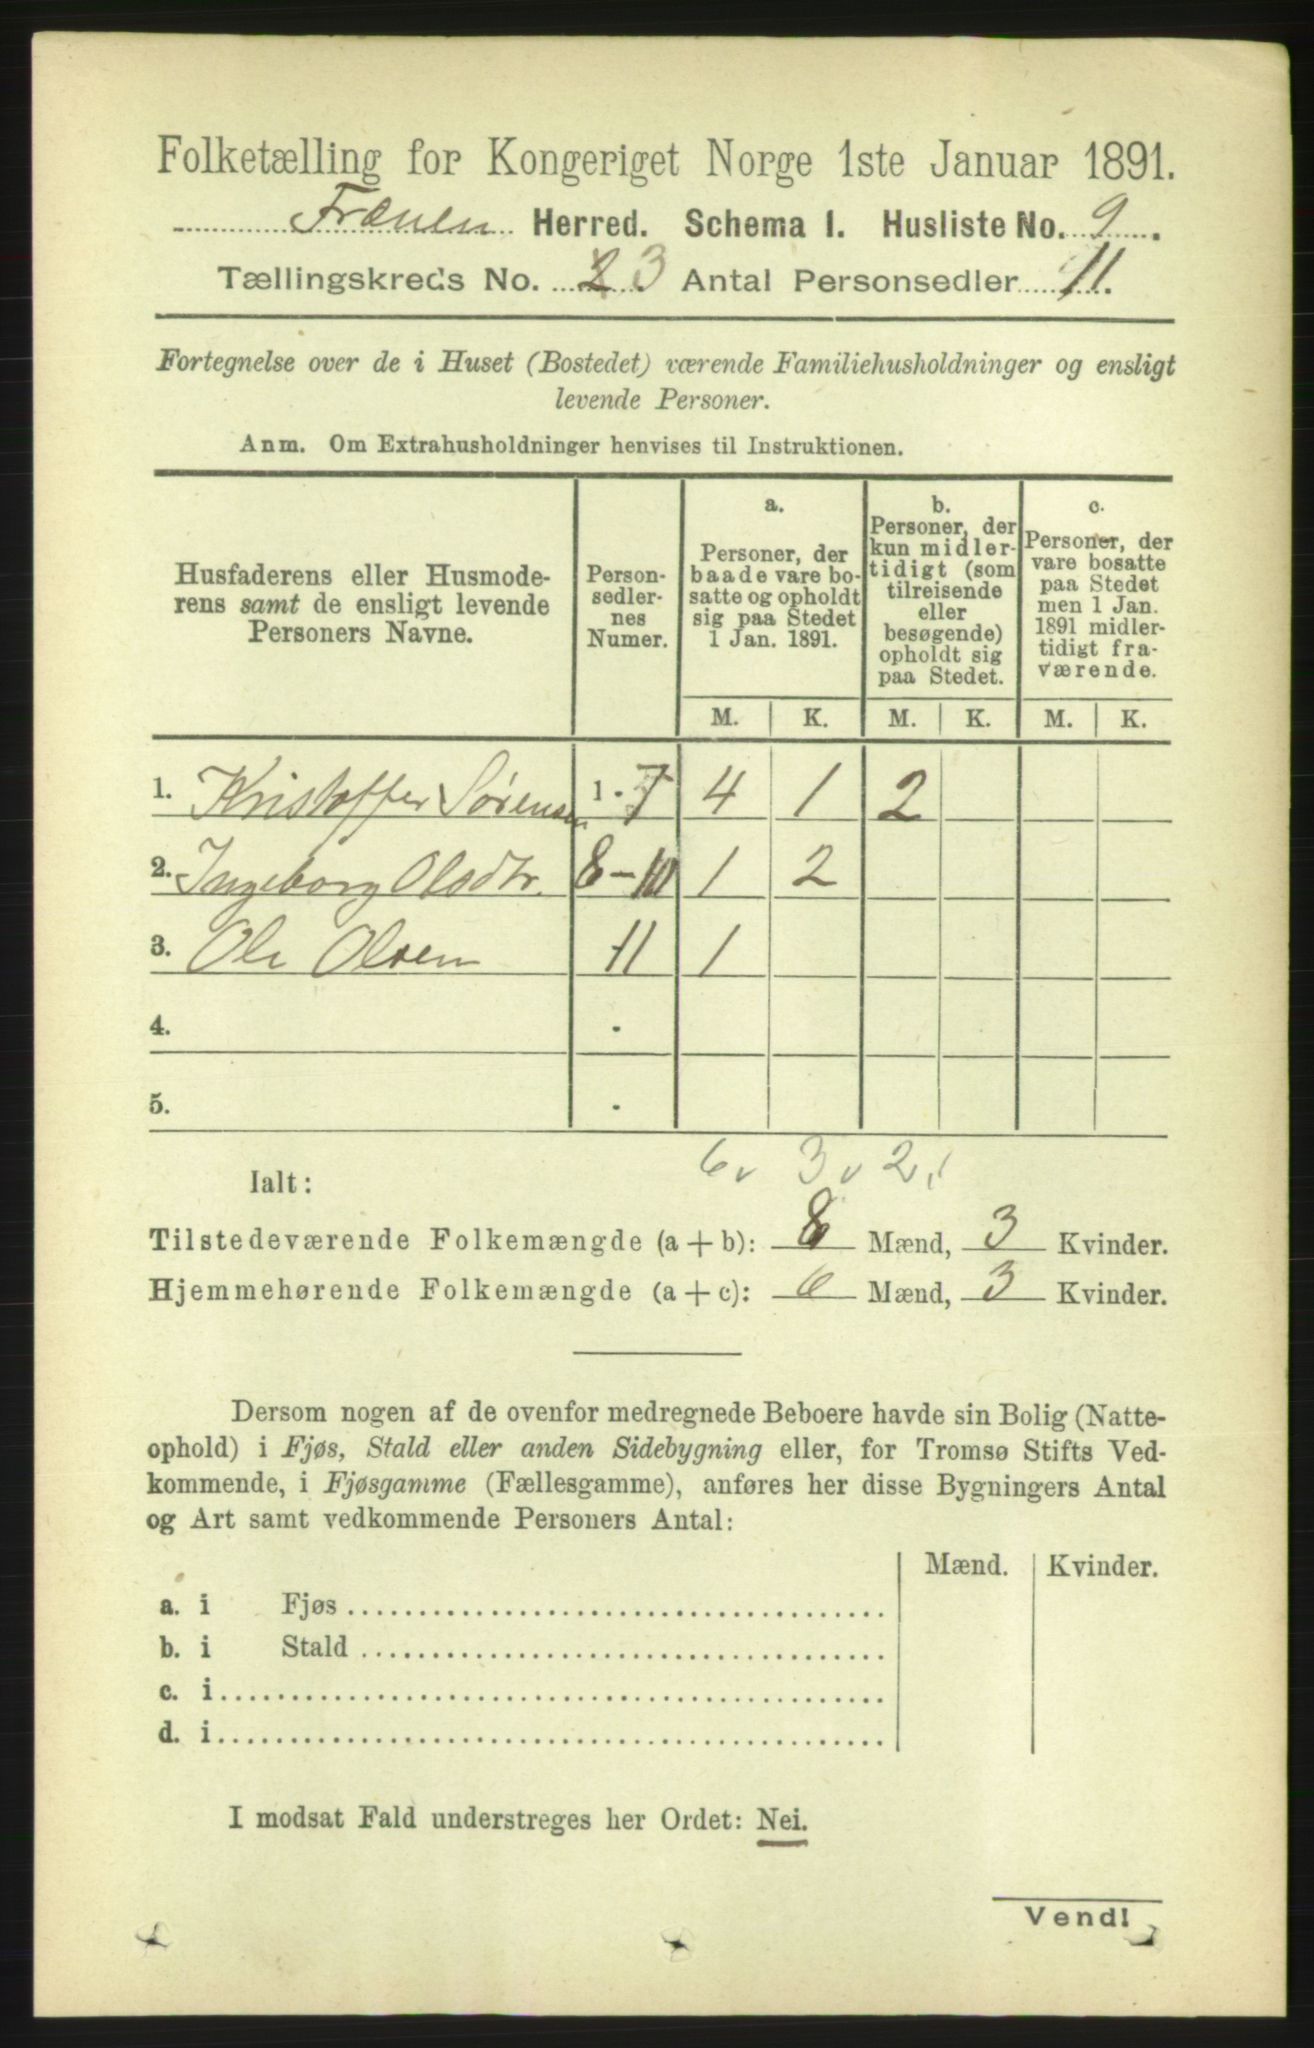 Folketælling for Kongeriget Norge 1ste Januar 1891.
Frænen Herred. Schema I. Husliste No. 9.
Tællingskreds No. 2 3 Antal Personsedler 11.
Fortegnelse over de i Huset (Bostedet) værende Familiehusholdninger og ensligt
levende Personer.
Anm. Om Extrahusholdninger henvises til Instruktionen.
Husfaderens eller Husmode-
rens samt de ensligt levende
Personers Navne.
Person-
sedler-
nes
Numer.
a.
Personer, der
baade vare bo-
satte og opholdt
sig paa Stedet
1 Jan. 1891.
b.
Personer, der
kun midler-
tidigt (som
tilreisende
eller
besøgende)
opholdt sig
paa Stedet.
c.
Personer, der
vare bosatte
paa Stedet
men 1 Jan.
1891 midler-
tidigt fra-
værende.
M. K. M. K. M. K.
1. Kristoffer Sørensen 1 - 7 4 1 2
2. Ingeborg Olsdtr. 8-10 1 2
3. Ole Olsen 11 1
4. .
5. .
6 v 3 v 2 v
Ialt:
Tilstedeværende Folkemængde (a + b): 8 Mænd, 3 Kvinder.
Hjemmehørende Folkemængde (a + c): 6 Mænd, 3 Kvinder.
Dersom nogen af de ovenfor medregnede Beboere havde sin Bolig (Natte-
ophold) i Fjøs, Stald eller anden Sidebygning eller, for Tromsø Stifts Ved-
kommende, i Fjøsgamme (Fællesgamme), anføres her disse Bygningers Antal
og Art samt vedkommende Personers Antal:
Mænd. Kvinder.
a. i Fjøs
b. i Stald
c. i
d. i
I modsat Fald understreges her Ordet: Nei.
Vend!